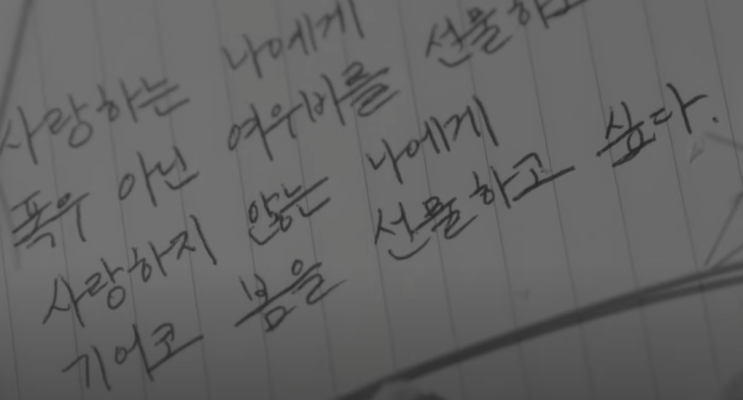 사랑하는 나에게
폭우 아닌 여우비를 선물하고
사랑하지 않는 나에게
기어코 봄을 선물하고 싶다.